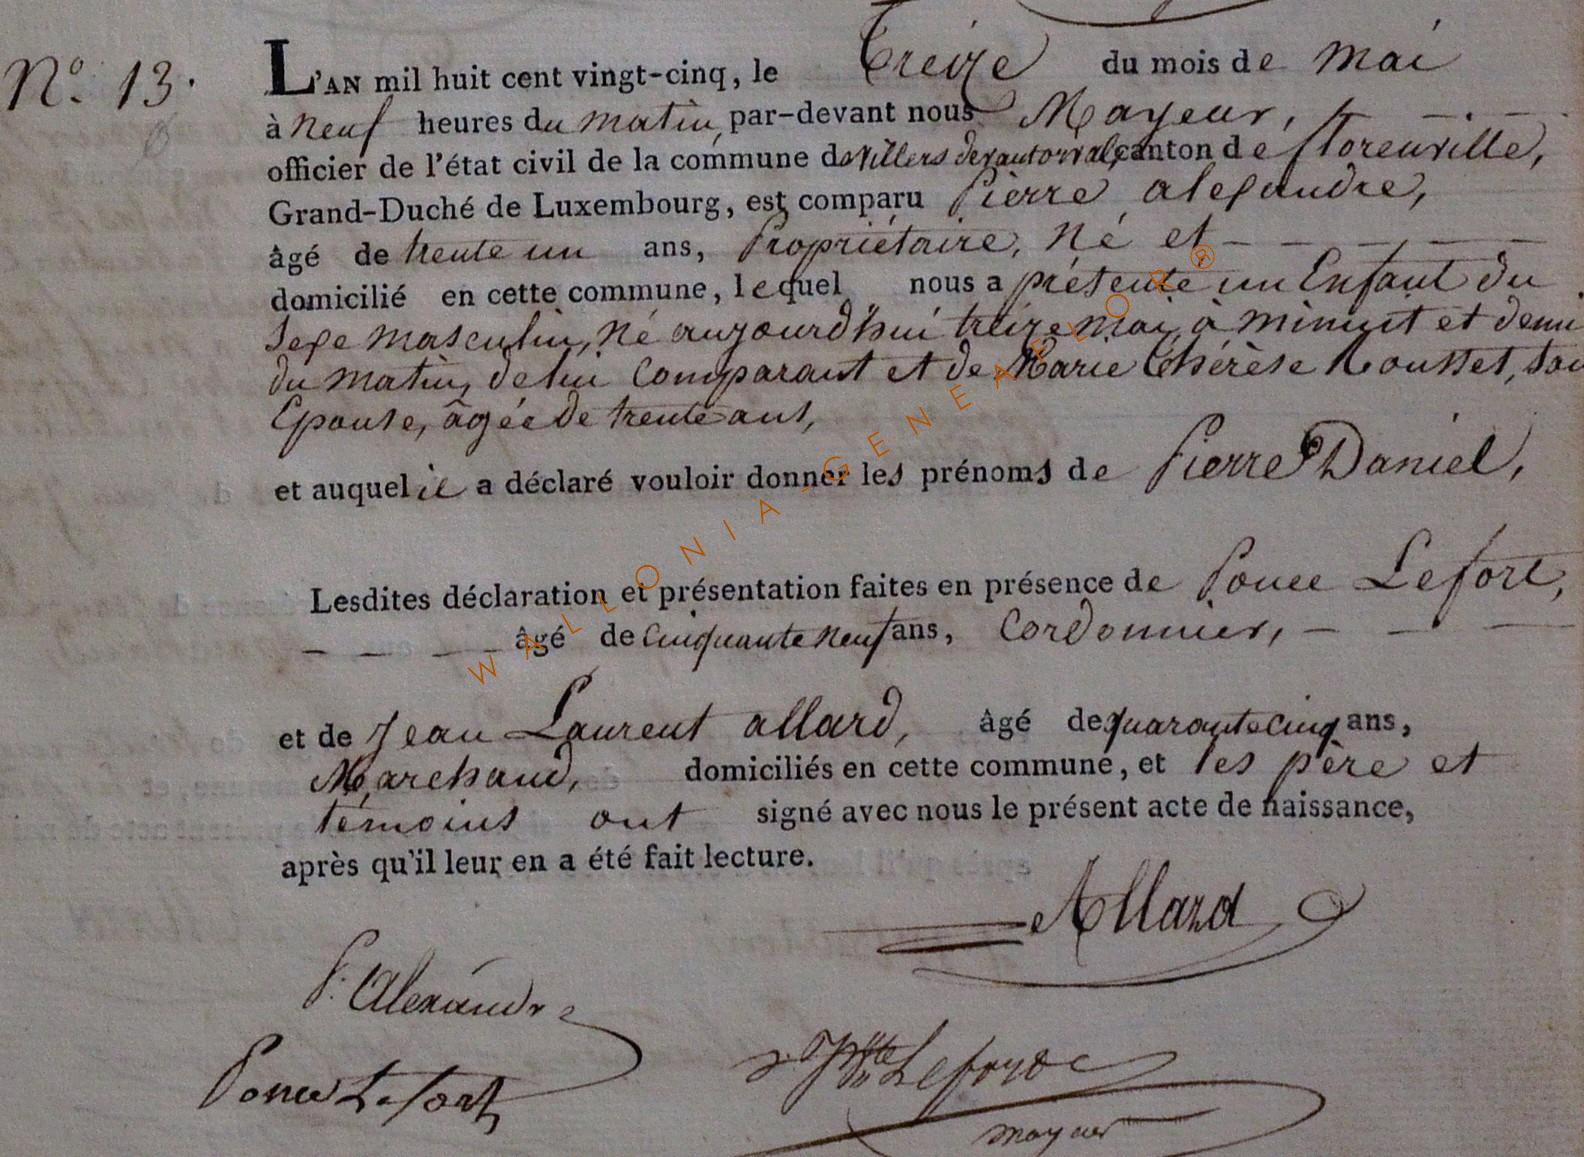 N.o 13.
L'AN mil huit cent vingt-cinq, le Treize du mois de mai
à neuf heures du matin, par-devant nous Mayeur,
officier de l'état civil de la commune de Villers devant orval, canton de florenville,
Grand-Duché de Luxembourg, est comparu Pierre alexandre,
âgé de trente un ans, Propriétaire, né et
domicilié en cette commune, lequel nous a présenté un Enfant du
Sexe masculin, né aujourd'hui treize mai, à minuit et demi
du matin, de lui Comparant et de Marie Thérèse Rousset, son
Epouse, âgée de trente ans,
et auquel il a déclaré vouloir donner les prénoms de Pierre Daniel,
Lesdites déclaration et présentation faites en présence de Ponce Lefort,
âgé de Cinquante neuf ans, Cordonnier,
et de Jean Laurent allard, âgé de quarante cinq ans,
Marchand, domiciliés en cette commune, et les père et
témoins ont signé avec nous le présent acte de naissance,
après qu'il leur en a été fait lecture.
Allard
P. Alexandre
Ponce Lefort
mayeur
WALLONIA-GENEAFLOR®